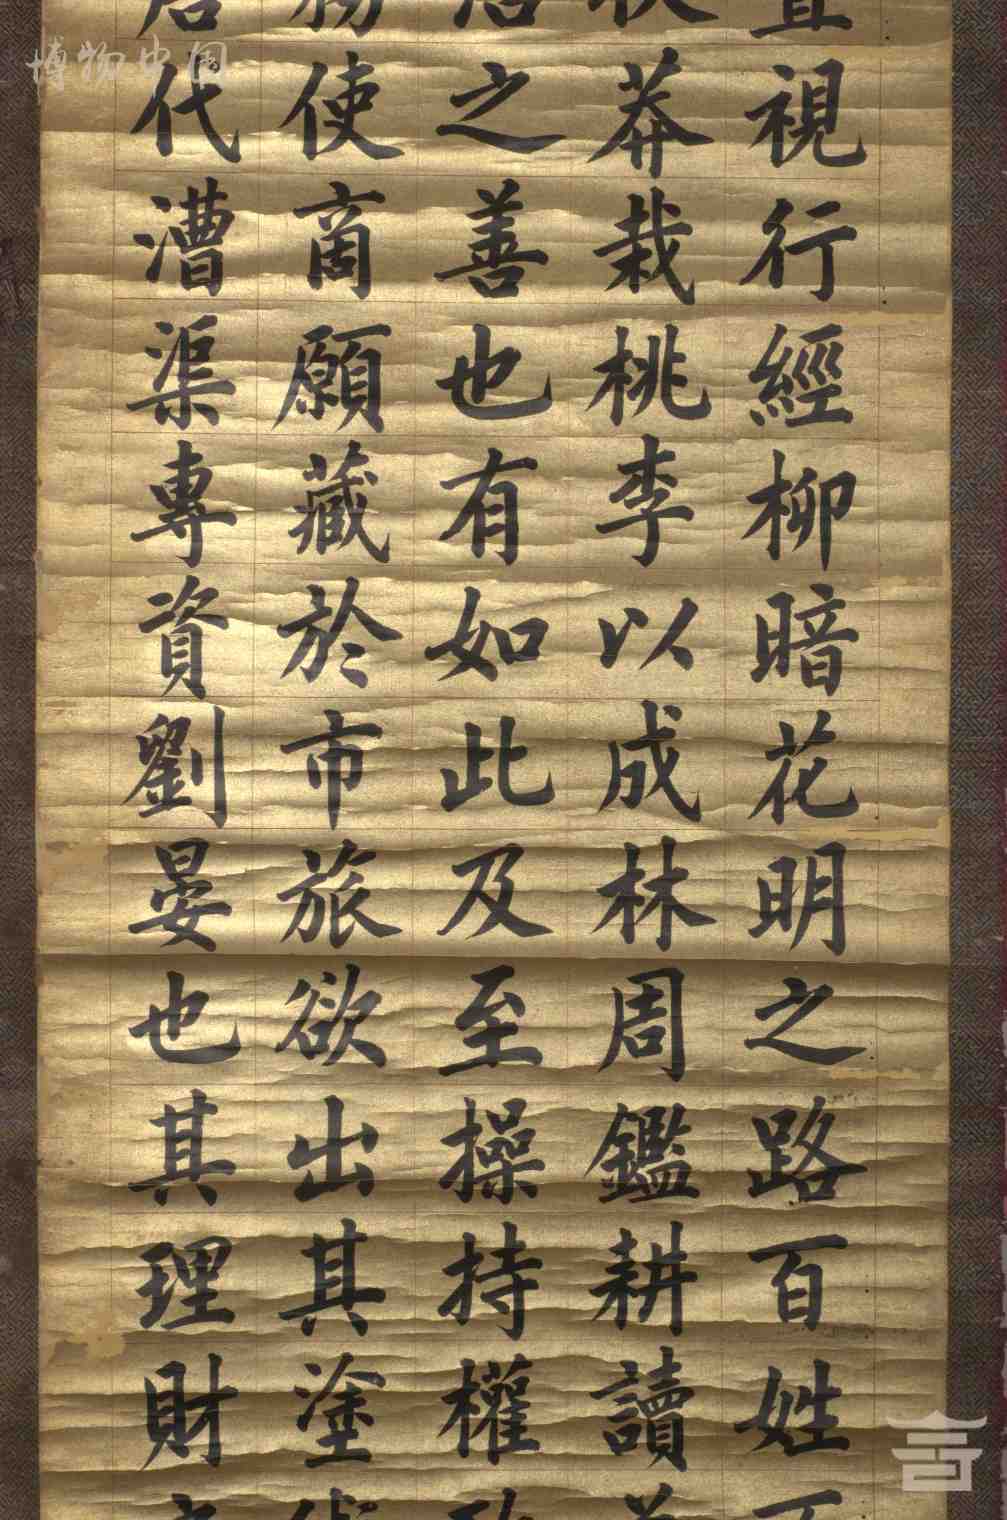 視行經柳暗花明之路百姓
莽栽桃李以成林周鑑耕讀
之善也有如此及至操持權
使商願藏於市旅欲出其塗
代漕渠專資劉晏也其理財
博物中国